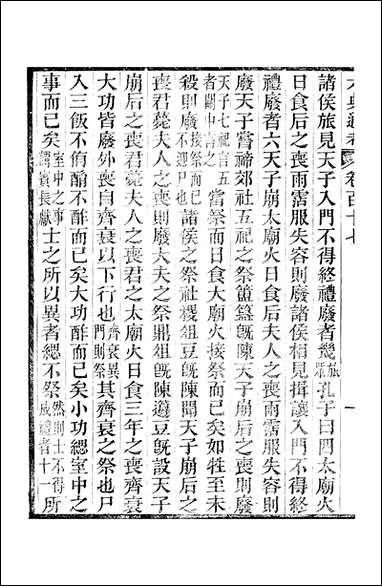 六典通考 卷百十七 一
諸侯旅見天子入門不得終禮廢者幾旅眾孔子曰四太廟火
日食后之喪雨霑服失容則廢諸侯相見揖讓入門不得終
禮廢者六天子崩太廟火日食后夫人之喪雨霑服失容則
廢天子嘗禘郊社五祀之祭簠簋既陳天子崩后之喪則廢
天子七祀言五者關中言之當祭而日食太廟火接祭而已矣如牲至未
殺則廢接祭而已不迎尸也諸侯之祭社稷俎豆既陳聞天子崩后之
喪君薨夫人之喪則廢大夫之祭鼎俎既陳籩豆既設天子
崩后之喪君薨夫人之喪君之太廟火日食三年之喪齊衰
大功皆廢外喪自齊衰以下行也齊衰異門則祭其齊衰之祭也尸
入三飯不侑酳不酢而已矣大功酢而已矣小功緦室中之
事而已矣室中之事謂賓長獻士之所以異者緦不祭然則士不得成禮者十一所